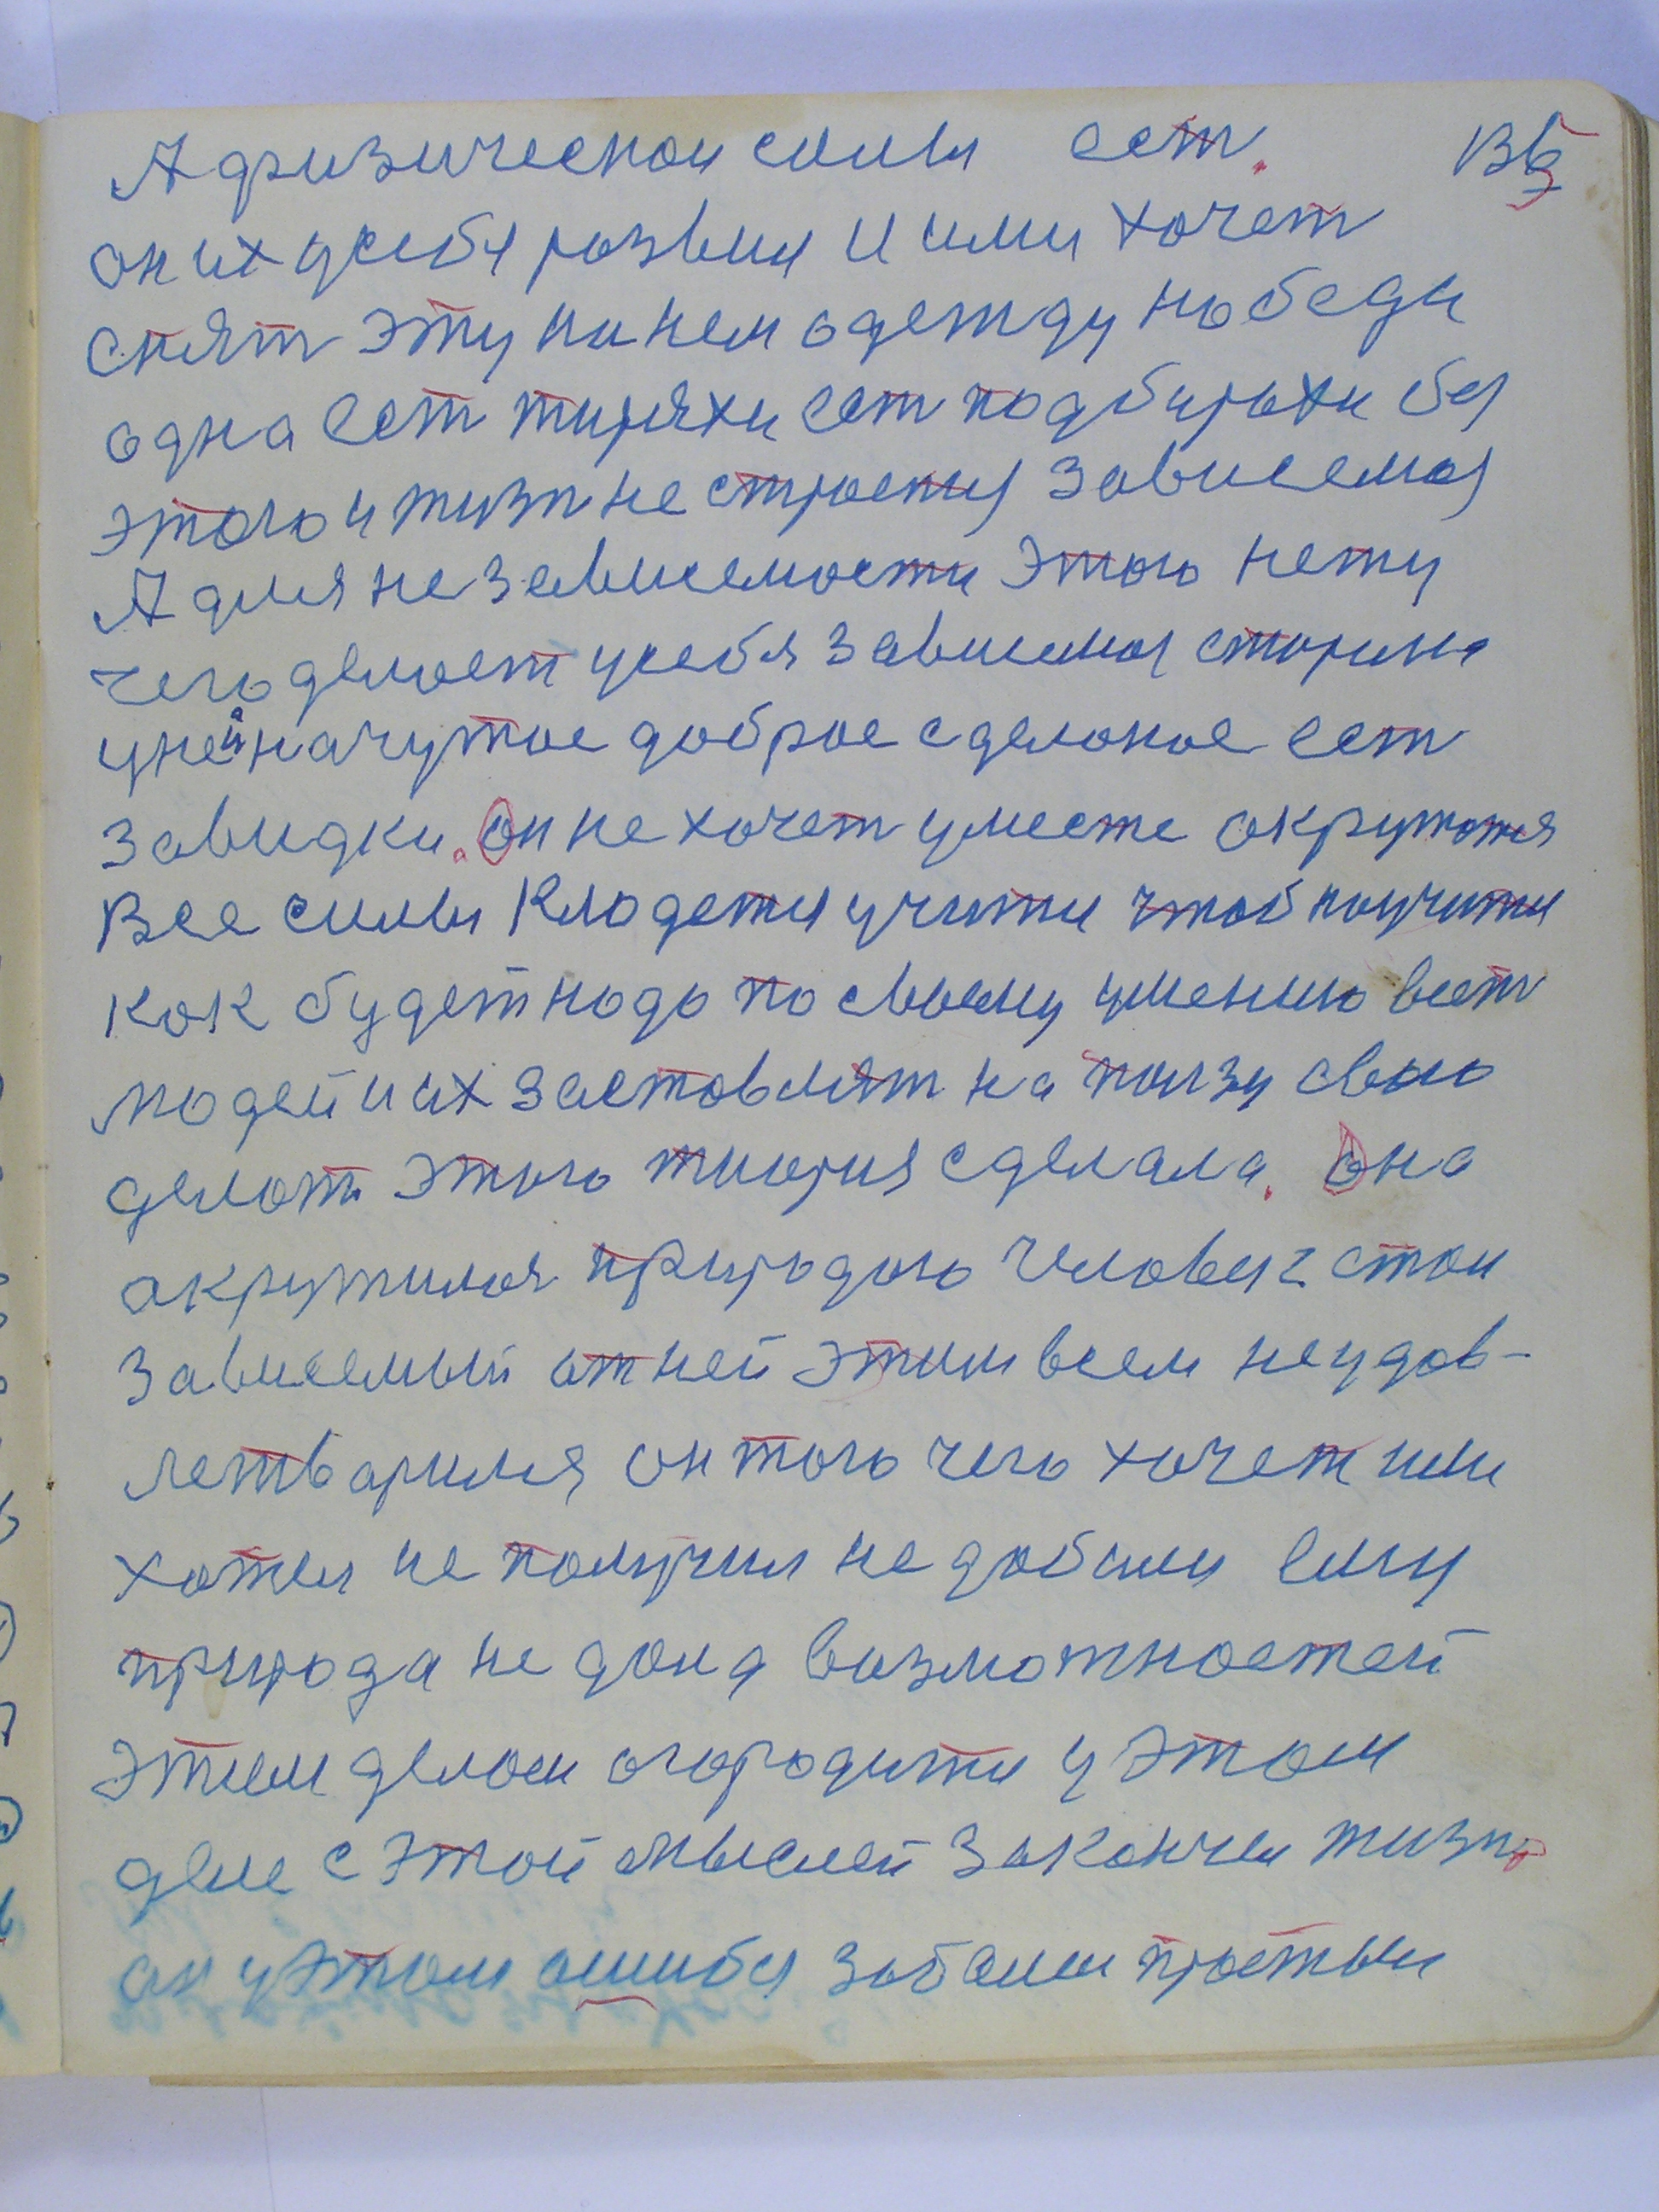 А физической силы ест. 136
он их усебя розвил и ими хочет
снят эту на нем одежду но беда
одна ест тиряхи ест подбирахи без
этого и жизн не строется зависемоя
А для не зависемости этого нету
чего делоет усебя зависимоя сторина
уней на чужое доброе сделоное ест
завидки. он не хочет уместе окружотся
Все силы Клодется учится чтоб научится
кок будет нодо по своему умению вест
людей и их зостовлят на ползу свою
делоть этого тиория сделала. она
окружилоя природою человек стои
зависемый от ней этим всем неудов-
летворился он того чего хочет или
хотел не получил не добили ему
природа не дала возможностей
этим делом огородится у этом
деле с этой мыслей закончел жизн
он у этом ошибся